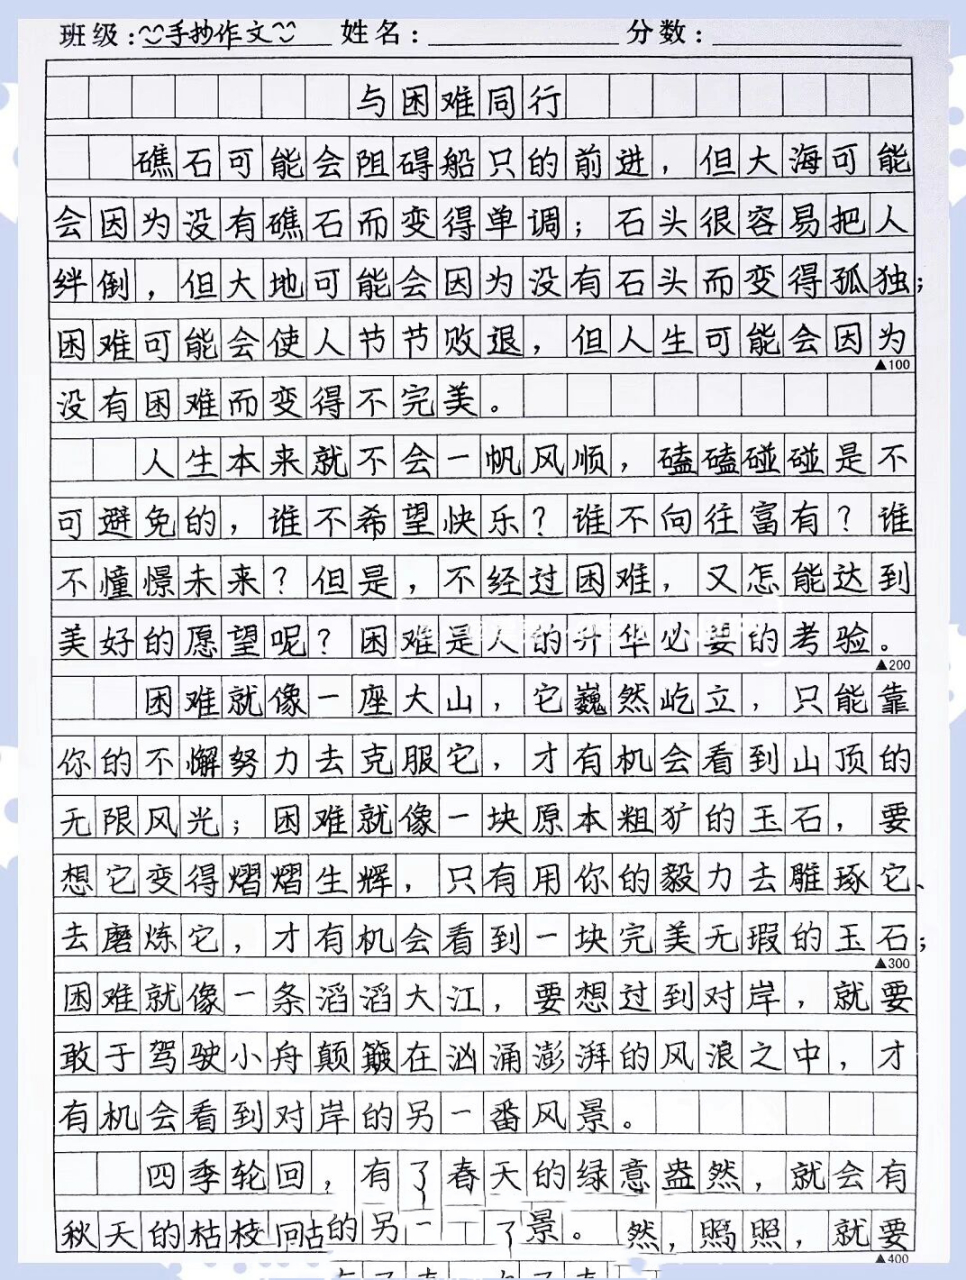 班级:手抄作文 姓名: 分数:
与困难同行
礁石可能会阻碍船只的前进，但大海可能
会因为没有礁石而变得单调；石头很容易把人
绊倒，但大地可能会因为没有石头而变得孤独；
困难可能会使人节节败退，但人生可能会因为
▲100
没有困难而变得不完美。
人生本来就不会一帆风顺，磕磕碰碰是不
可避免的，谁不希望快乐？谁不向往富有？谁
不憧憬未来？但是，不经过困难，又怎能达到
美好的愿望呢？困难是人的升华必要的考验。
▲200
困难就像一座大山，它巍然屹立，只能靠
你的不懈努力去克服它，才有机会看到山顶的
无限风光；困难就像一块原本粗犷的玉石，要
想它变得熠熠生辉，只有用你的毅力去雕琢它、
去磨炼它，才有机会看到一块完美无瑕的玉石；
▲300
困难就像一条滔滔大江，要想过到对岸，就要
敢于驾驶小舟颠簸在汹涌澎湃的风浪之中，才
有机会看到对岸的另一番风景。
四季轮回，有了春天的绿意盎然，就会有
秋天的枯枝 的另一 了景。然， 照，就要
▲400